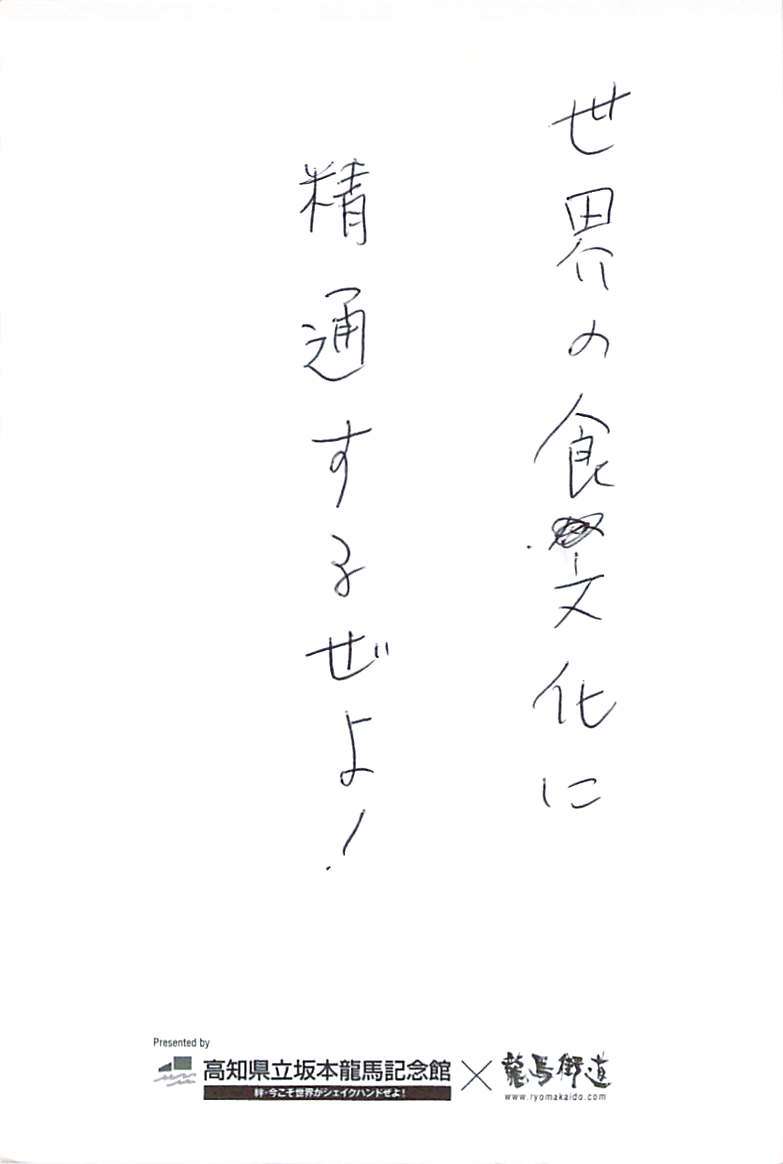 世界の食文化に
精通するぜよ!
Presented by
高知県立坂本龍馬記念館×龍馬街道
絆・今こそ世界がシェイクハンドぜよ!
www.ryomakaido.com